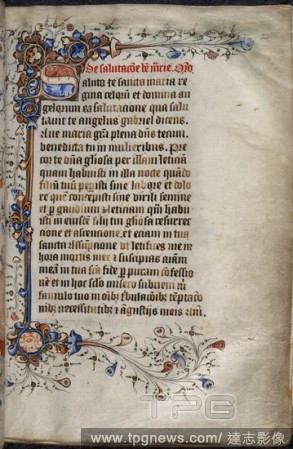 De salutacõe bẽ mrie. Orõ
Saluto te sancta maria re
gina celorũ et domina an
gelorum ea salutacione qua salu
tauit te angelus gabriel dicens.
Aue maria grã plena dñs tecum.
benedicta tu in mulieribus. Pre
cor te dña gliosa per illam leticiã
quam habuisti in illa nocte quãdo
filiũ tuũ peperisti sine labore et dolo
re quẽ concepisti sine virili semine
et p gaudium et leticiam quã habu
isti in eiusdẽ filij tui gliosa resurrec
tione et ascensione, et etiam in tua
sancta assumptione ut letifices me in
hora mortis mee et suscipias aiam
meã in tua scã fide p puram cõfessio
nẽ et in hoc sclo misero subueni mͥ
famulo tuo in oĩbꝫ tribulacõibꝫ tẽptacõ
nibꝫ necessitatibꝫ et ãgustijs meis
TPG
www.tpgnews.com / 達志影像